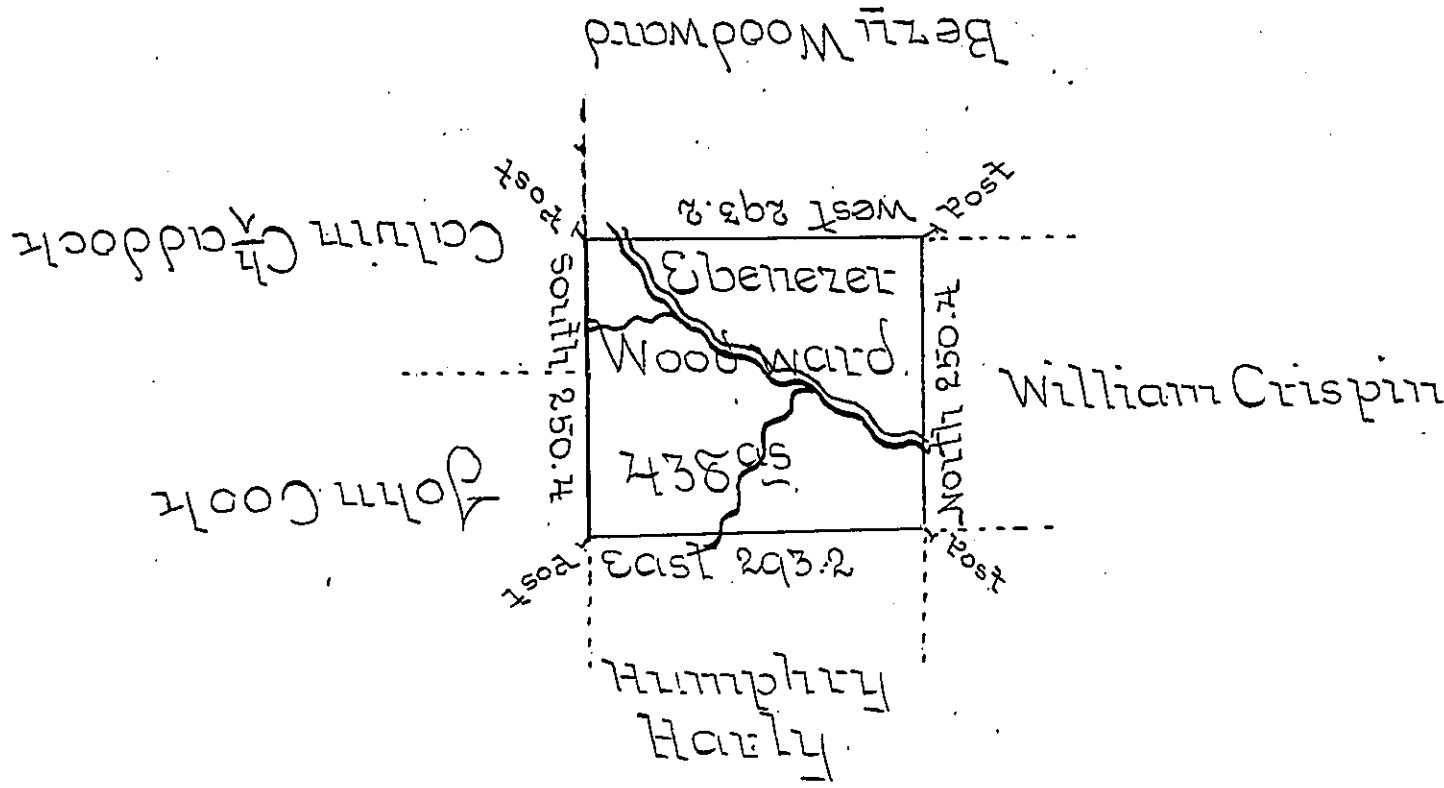 Benj Woodward
post
West 293.2
post
Calvin Chaddock
South 250.4
Ebenezer
Woodward.
438 as
North 250.4
William Crispin
John Cook
post
East 293.2
post
Humphry
Harly